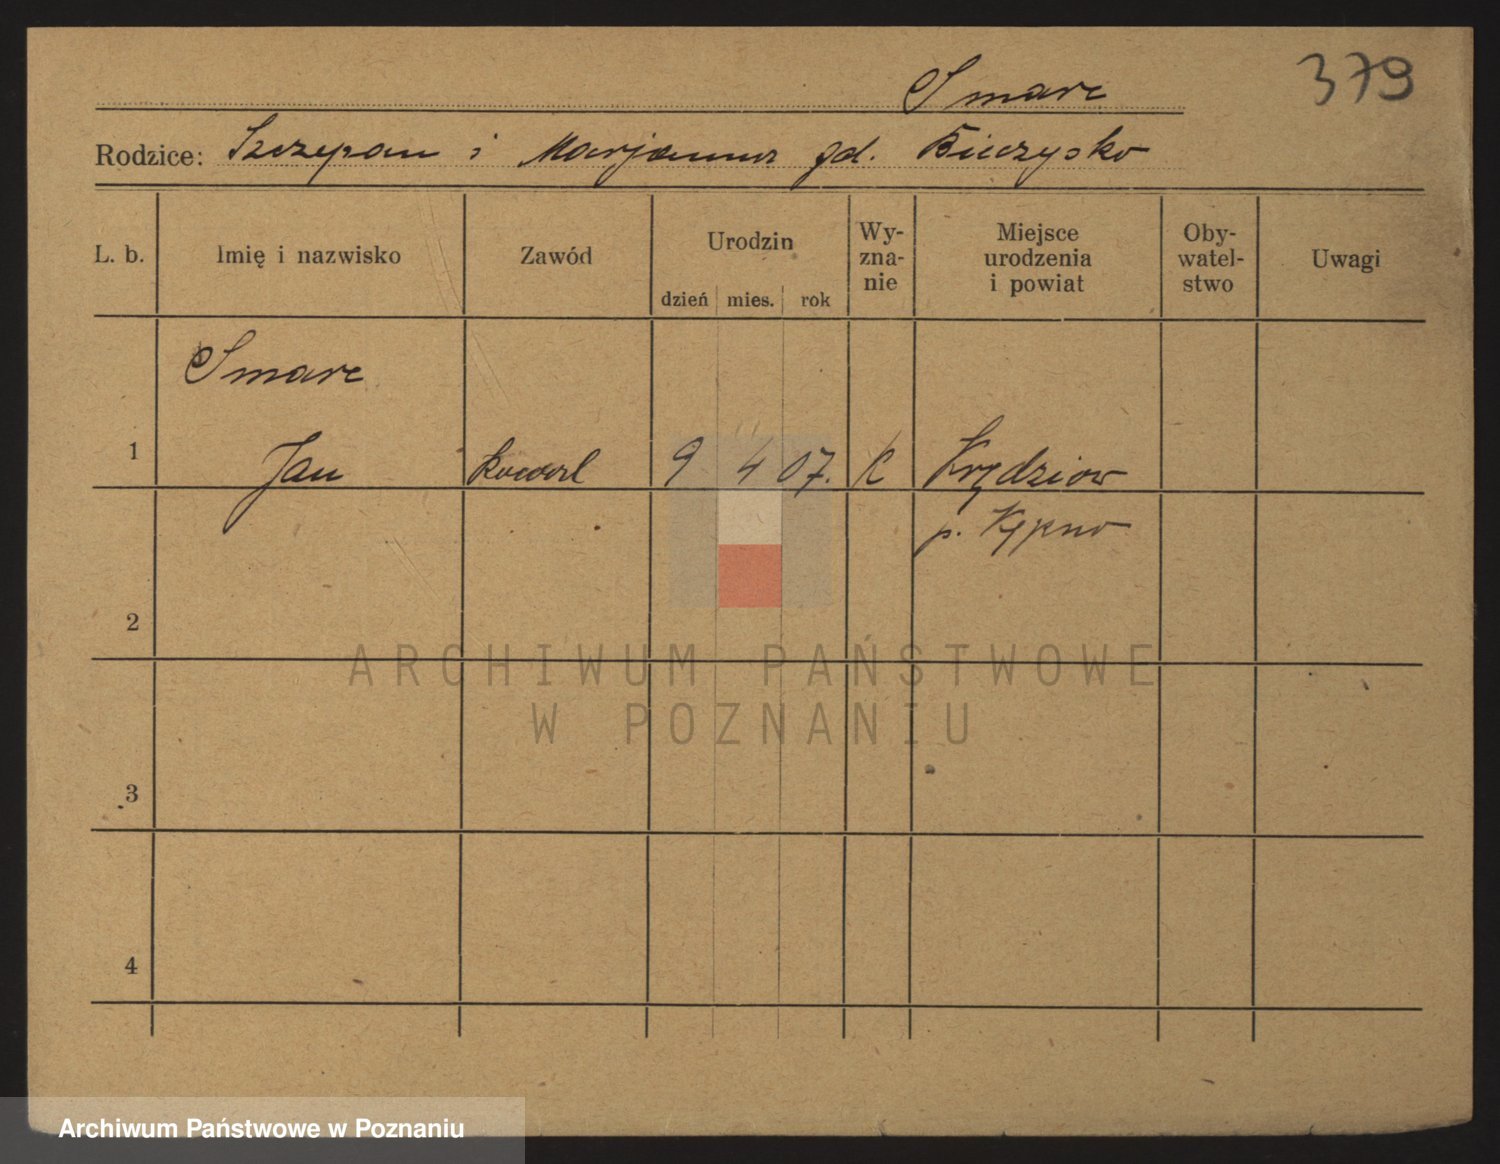 Smarc
379
Rodzice: Szczepan i Marjanna zd. Biczysko
L. b. Imię i nazwisko Zawód Urodzin dzień mies. rok Wy-zna-nie Miejsce urodzenia i powiat Oby-watel-stwo Uwagi
Smarc
1 Jan kowal 9 4 07. K
p. Kępno
2
ARCHIWUM PAŃSTWOWE
W POZNANIU
3
4
Archiwum Państwowe w Poznaniu